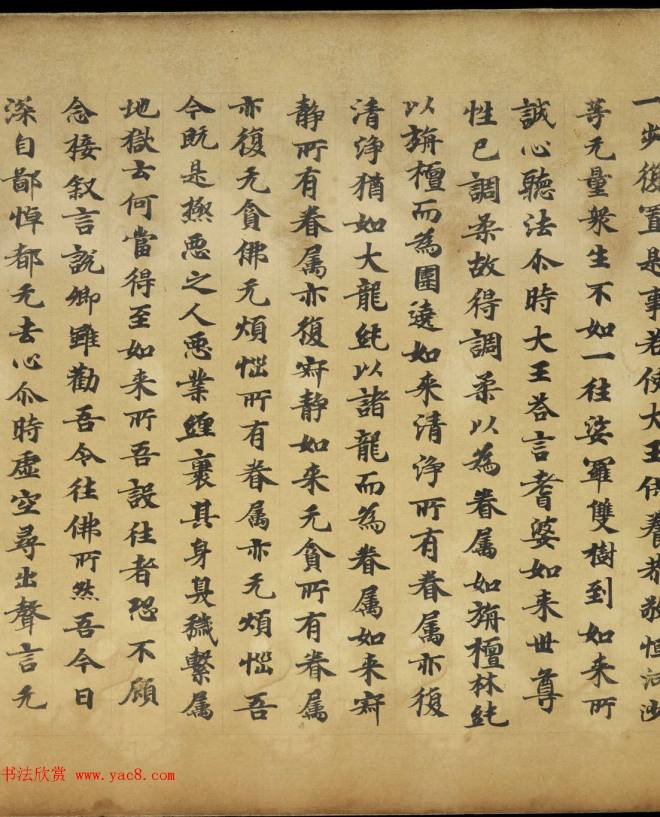 一步復置是事若使大王供養恭敬恒河沙
等无量衆生不如一往娑羅雙樹到如来所
誠心聽法尒時大王荅言耆婆如来世尊
性已調柔故得調柔以為眷属如旃檀林純
以旃檀而為圍遶如来清浄所有眷属亦復
清浄猶如大龍純以諸龍而為眷属如来㝥
静所有眷属亦復㝥静如来无貪所有眷属
亦復无貪佛无煩惱所有眷属亦无煩惱吾
今既是極悪之人悪業纏裹其身臭穢繫属
地獄云何當得至如来所吾設往者恐不顧
念接叙言說卿雖勸吾令往佛所然吾今日
深自鄙悼都无去心尒時虚空尋出聲言无
书法欣赏 www.yac8.com